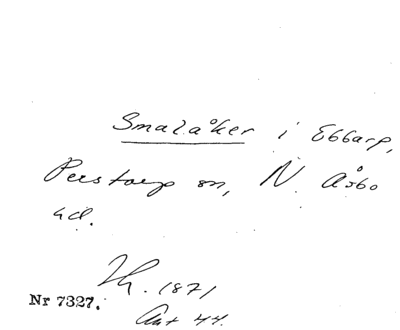 Smalåker i Ebbarp,
Perstorp sn, N. Åsbo
hd.
Th. 1871
Nr 7327.
Ant 44.